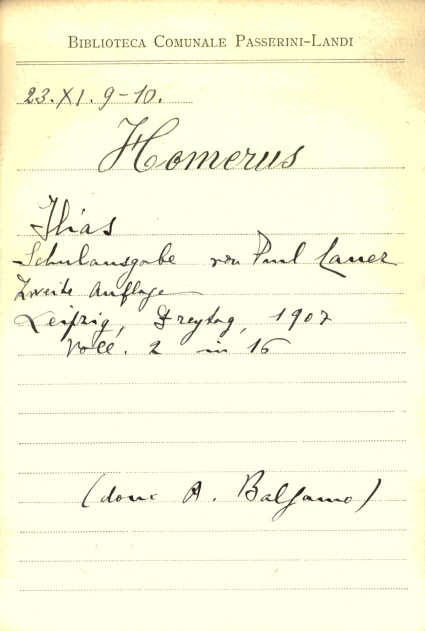 BIBLIOTECA COMUNALE PASSERINI-LANDI
23.XI.9-10.
Homerus
Ilias
Schulausgabe von Paul Cauer
Zweite Auflage
Leipzig, Freytag, 1907
Voll. 2 in 16
(dono A. Balsamo)